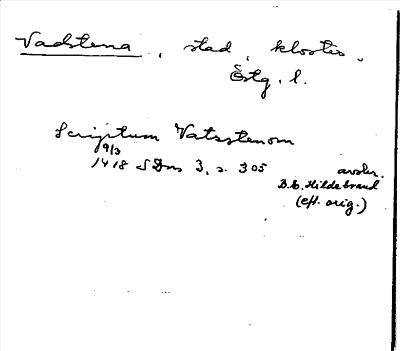 Vadstena, stad, kloster.
Östg. l.
Scriptum Vatzstenom
9/3
1418 SDns 3, s. 305 avskr.
B.E. Hildebrand
(eft. orig.)